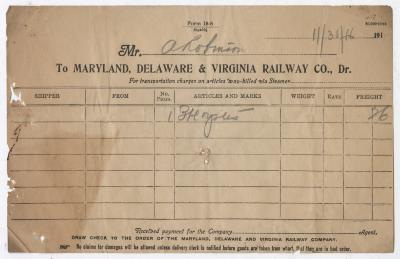 Form 18-S
11/30/16 191
Mr. A Robinson
To MARYLAND, DELAWARE & VIRGINIA RAILWAY CO., Dr.
For transportation charges on articles way-billed via Steamer
SHIPPER FROM No. ARTICLES AND MARKS WEIGHT RATE FREIGHT
1 Oysters 26
Received payment for the Company Agent.
DRAW CHECK TO THE ORDER OF THE MARYLAND, DELAWARE AND VIRGINIA RAILWAY COMPANY.
No claims for damages will be allowed unless delivery clerk is notified before goods are taken from wharf, that they are in bad order.